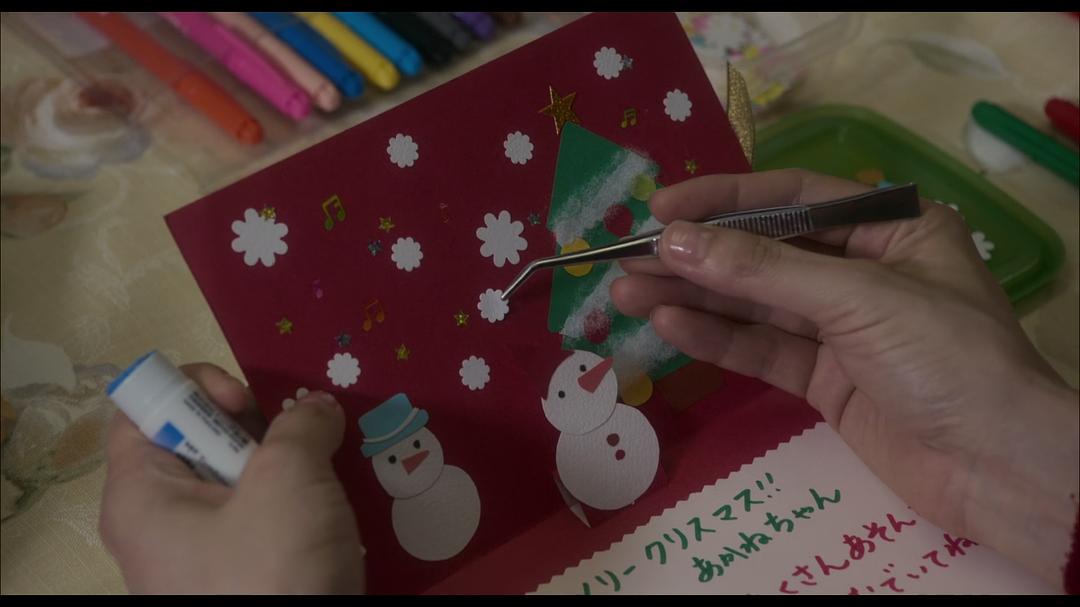 リー クリスマス!!
あかねちゃん
くさんあそん
でいてね